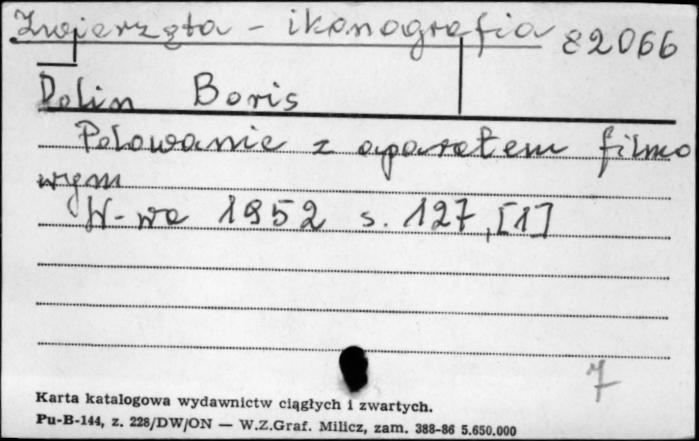 Zwierzęta - ikonografia 82066
Dolin Boris
Polowanie z aparatem filmo
wym
W-wa 1952 s. 127, [1]
7
Karta katalogowa wydawnictw ciągłych i zwartych.
Pu-B-144, z. 228/DW/ON — W.Z.Graf. Milicz, zam. 388-86 5.650.000